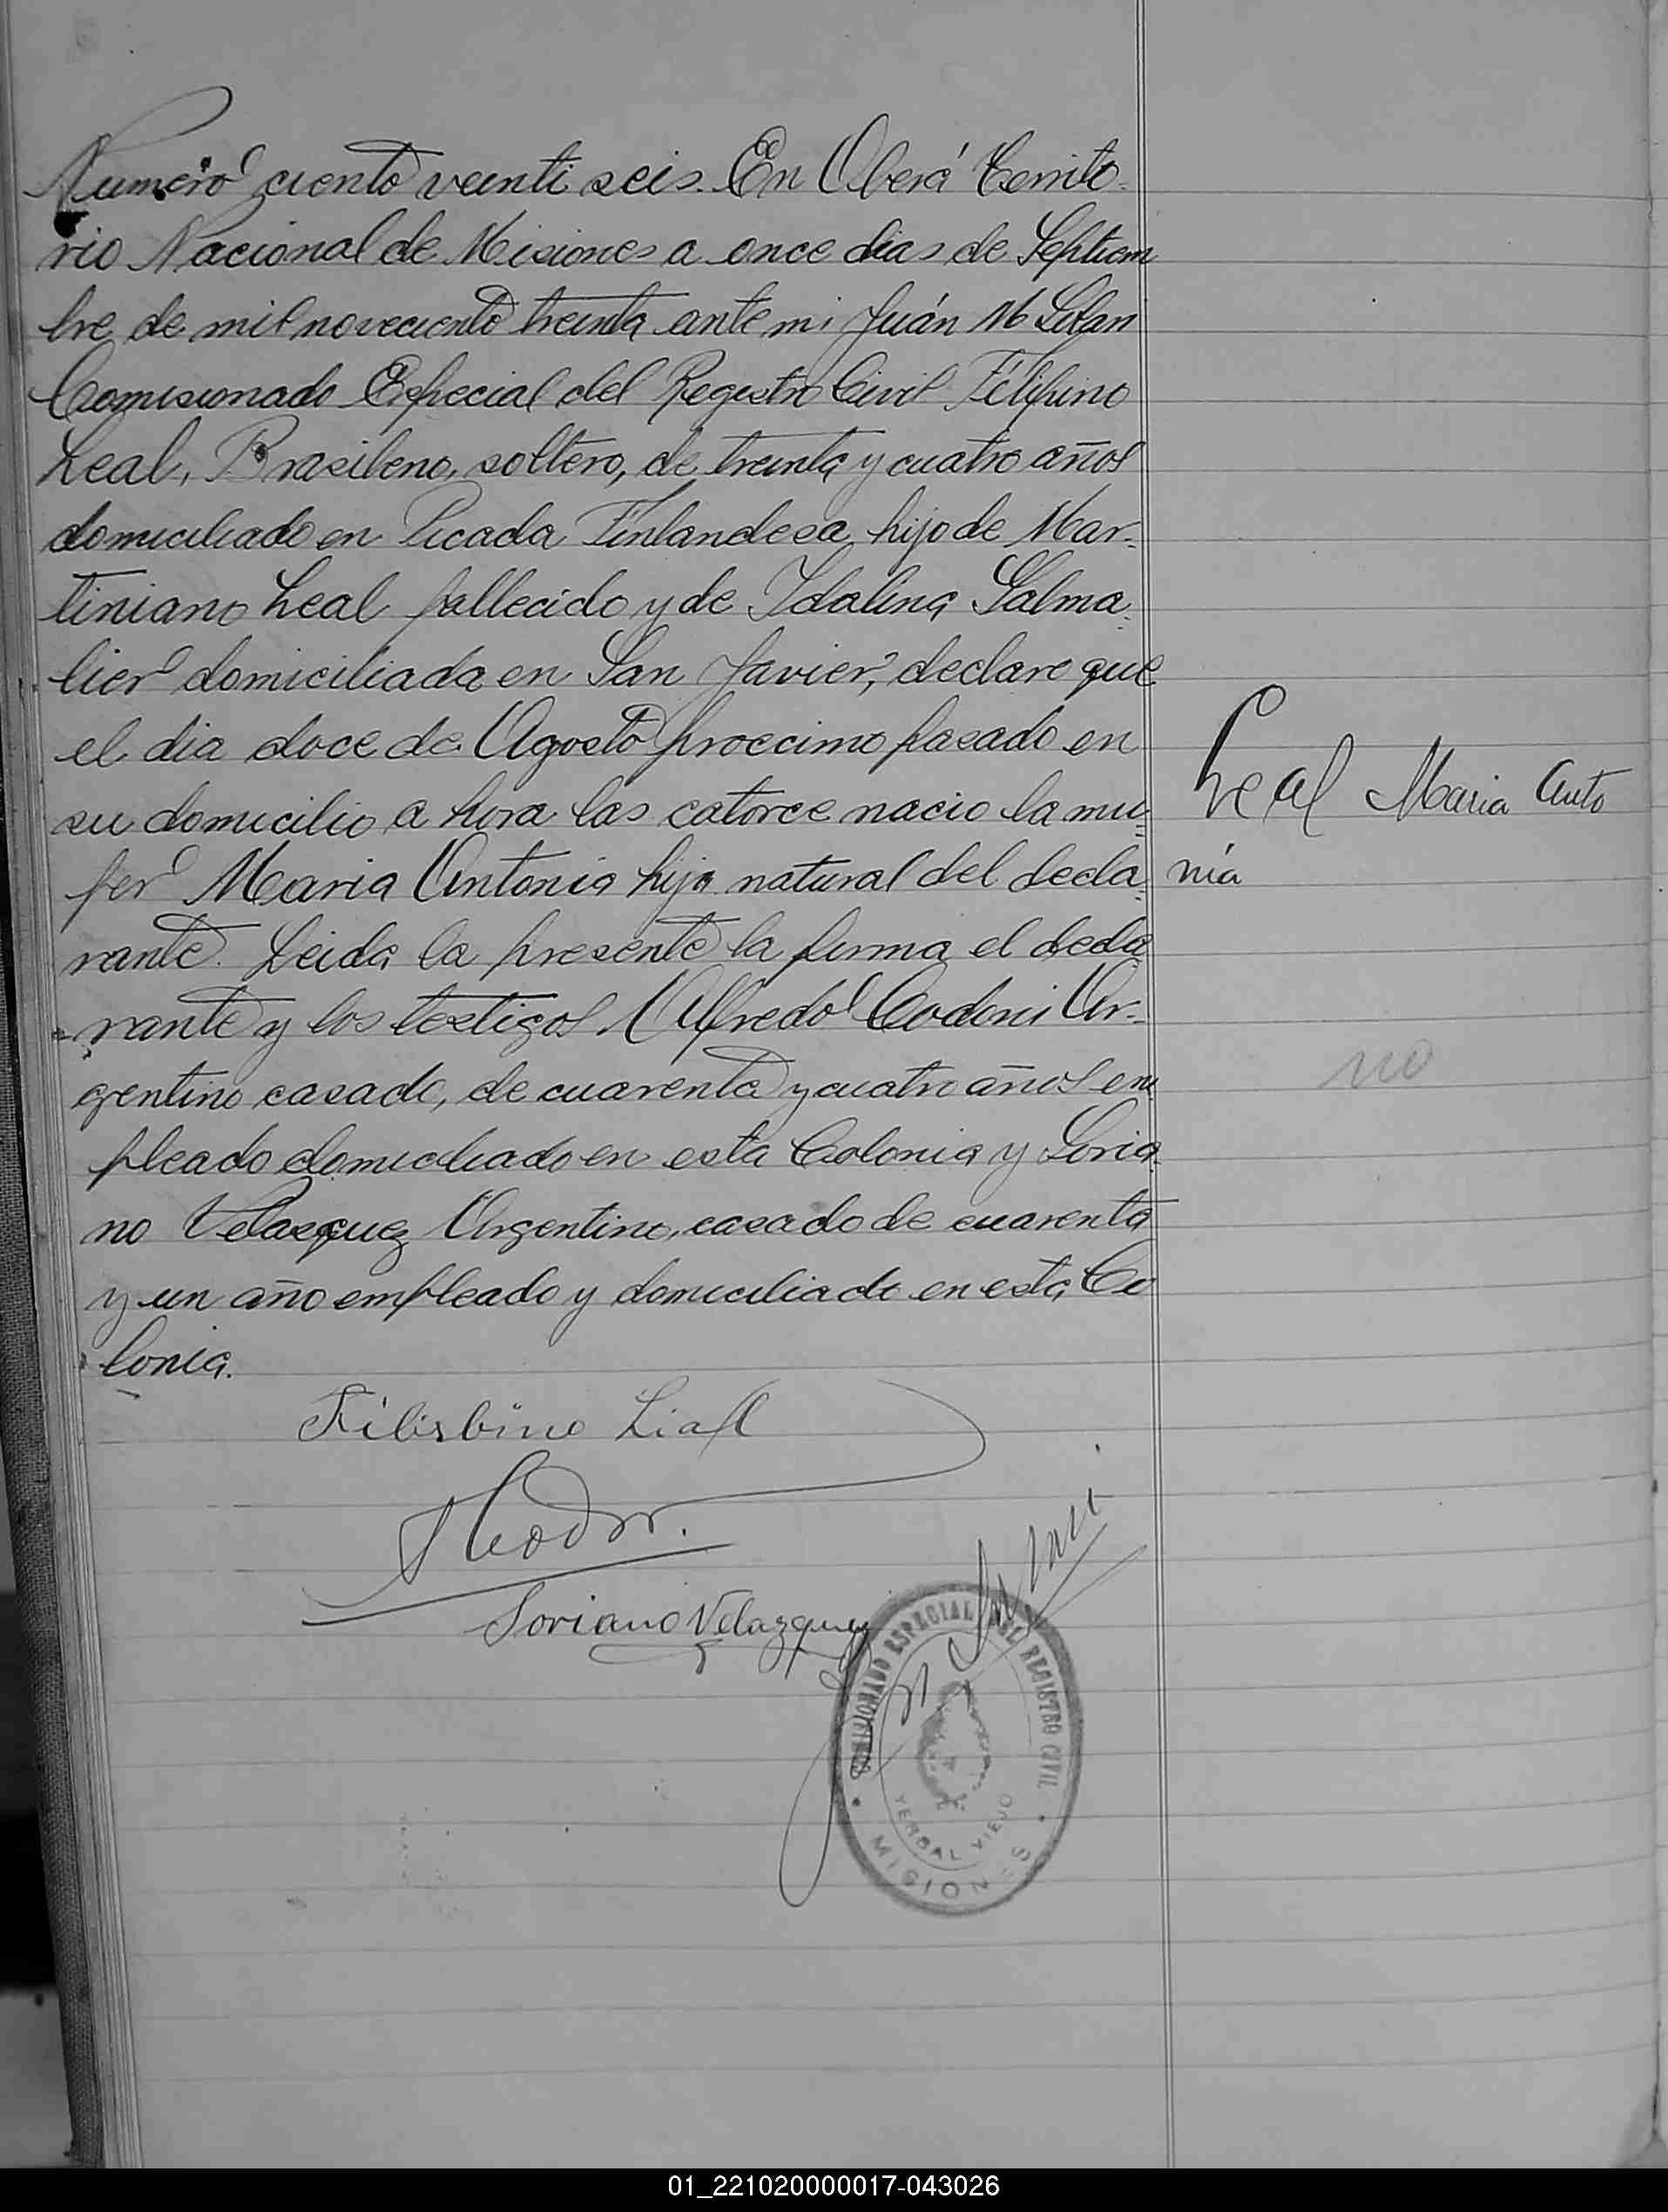 Numero ciento veinti seis. En Oberá Territo-
rio Nacional de Misiones a once dias de Septiem
bre de mil noveciento treinta ante mi Juán M
Comisionado Especial del Registro Civil Felipino
Leal, Brasileno, soltero, de treinta y cuatro años
domiciliado en Picada Finlandesa hijo de Mar-
tiniano Leal fallecido y de Idalina Salma-
lier domiciliada en San Javier, declaro que
el dia doce de Agosto proccimo pasado en
su domicilio a hora las catorce nacio la mu-
jer Maria Antonia hija natural del decla-
rante. Leida la presente la firma el decla
rante y los testigos Alfredo Codoni Ar-
gentino casado, de cuarenta y cuatro años em
pleado domiciliado en esta Colonia y Soria-
no Velasquez Argentino, casado de cuarenta
y un año empleado y domiciliado en esta Co
lonia.
Leal Maria Anto
nia
no
Filisbino Liall
Soriano Velazquez
COMISIONADO ESPECIAL DEL REGISTRO CIVIL
YERBAL VIEJO
MISIONES
01_221020000017-043026